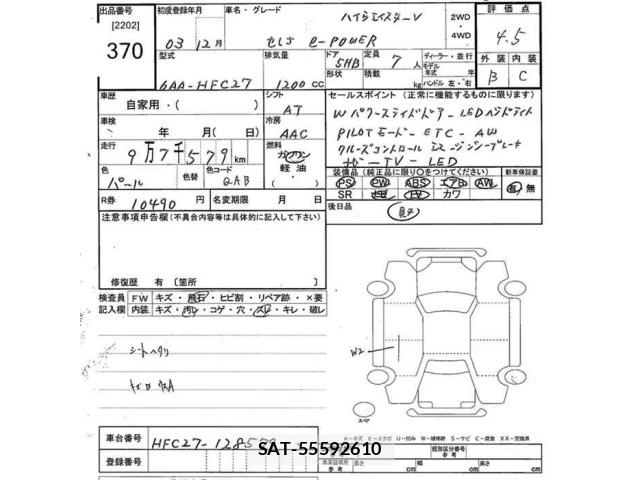 出品番号 初度登録年月 車名・グレード ハイウェイスターV 2WD・4WD 評価点
[2202] 370 03年12月 セレナ e-POWER 4.5
型式 6AA-HFC27 排気量 1200 CC ドア 形状 5HB 定員 7人 積載 kg ディーラー・並行 モデル年式 年 ハンドル 左・右 外装 B 内装 C
車歴 自家用・( ) シフト AT セールスポイント (正常に機能するものに限ります)
車検 年 月( 日) 冷房 AAC Wパワースライドドア-LEDヘッドライト
走行 9万7千579km 燃料 ガソリン 軽油・ PILOTモード-ETC-AW
色 パール 色替 色コード QAB クルーズコントロール エマージンシーブレーキ
ナビ-TV-LED
R券 10490円 名変期限 月 日 装備品 (純正品に限り○をつけてください) 新車保証書
PS PW ABS エアB AW 有・無
SR ナビ TV カワ
注意事項申告欄(不具合内容等は具体的に記入して下さい) 後日品
修復歴 有 〔箇所 〕
検査員記入欄 FW キズ・飛石・ヒビ割・リペア跡・×要
内装 キズ・汚れ・コゲ・穴・スレ・キレ・破レ
シートヘタリ
W2
スペア
A-キズ E-エクボ U-凹み W-補修跡 S-サビ C-腐食 XX-交換済
車台番号 HFC27-128579
SAT-55592610
登録番号
類別区分番号 参考
車庫証明用 参考 長さ cm 幅 cm 高さ cm